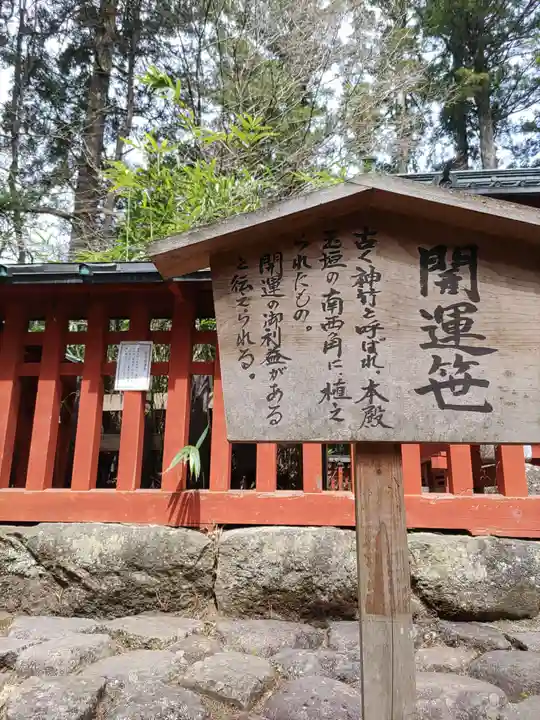 開運笹
古く神苻と呼ばれ、本殿
玉垣の南西角に植え
られたもの。
開運の御利益がある
と伝えられる。